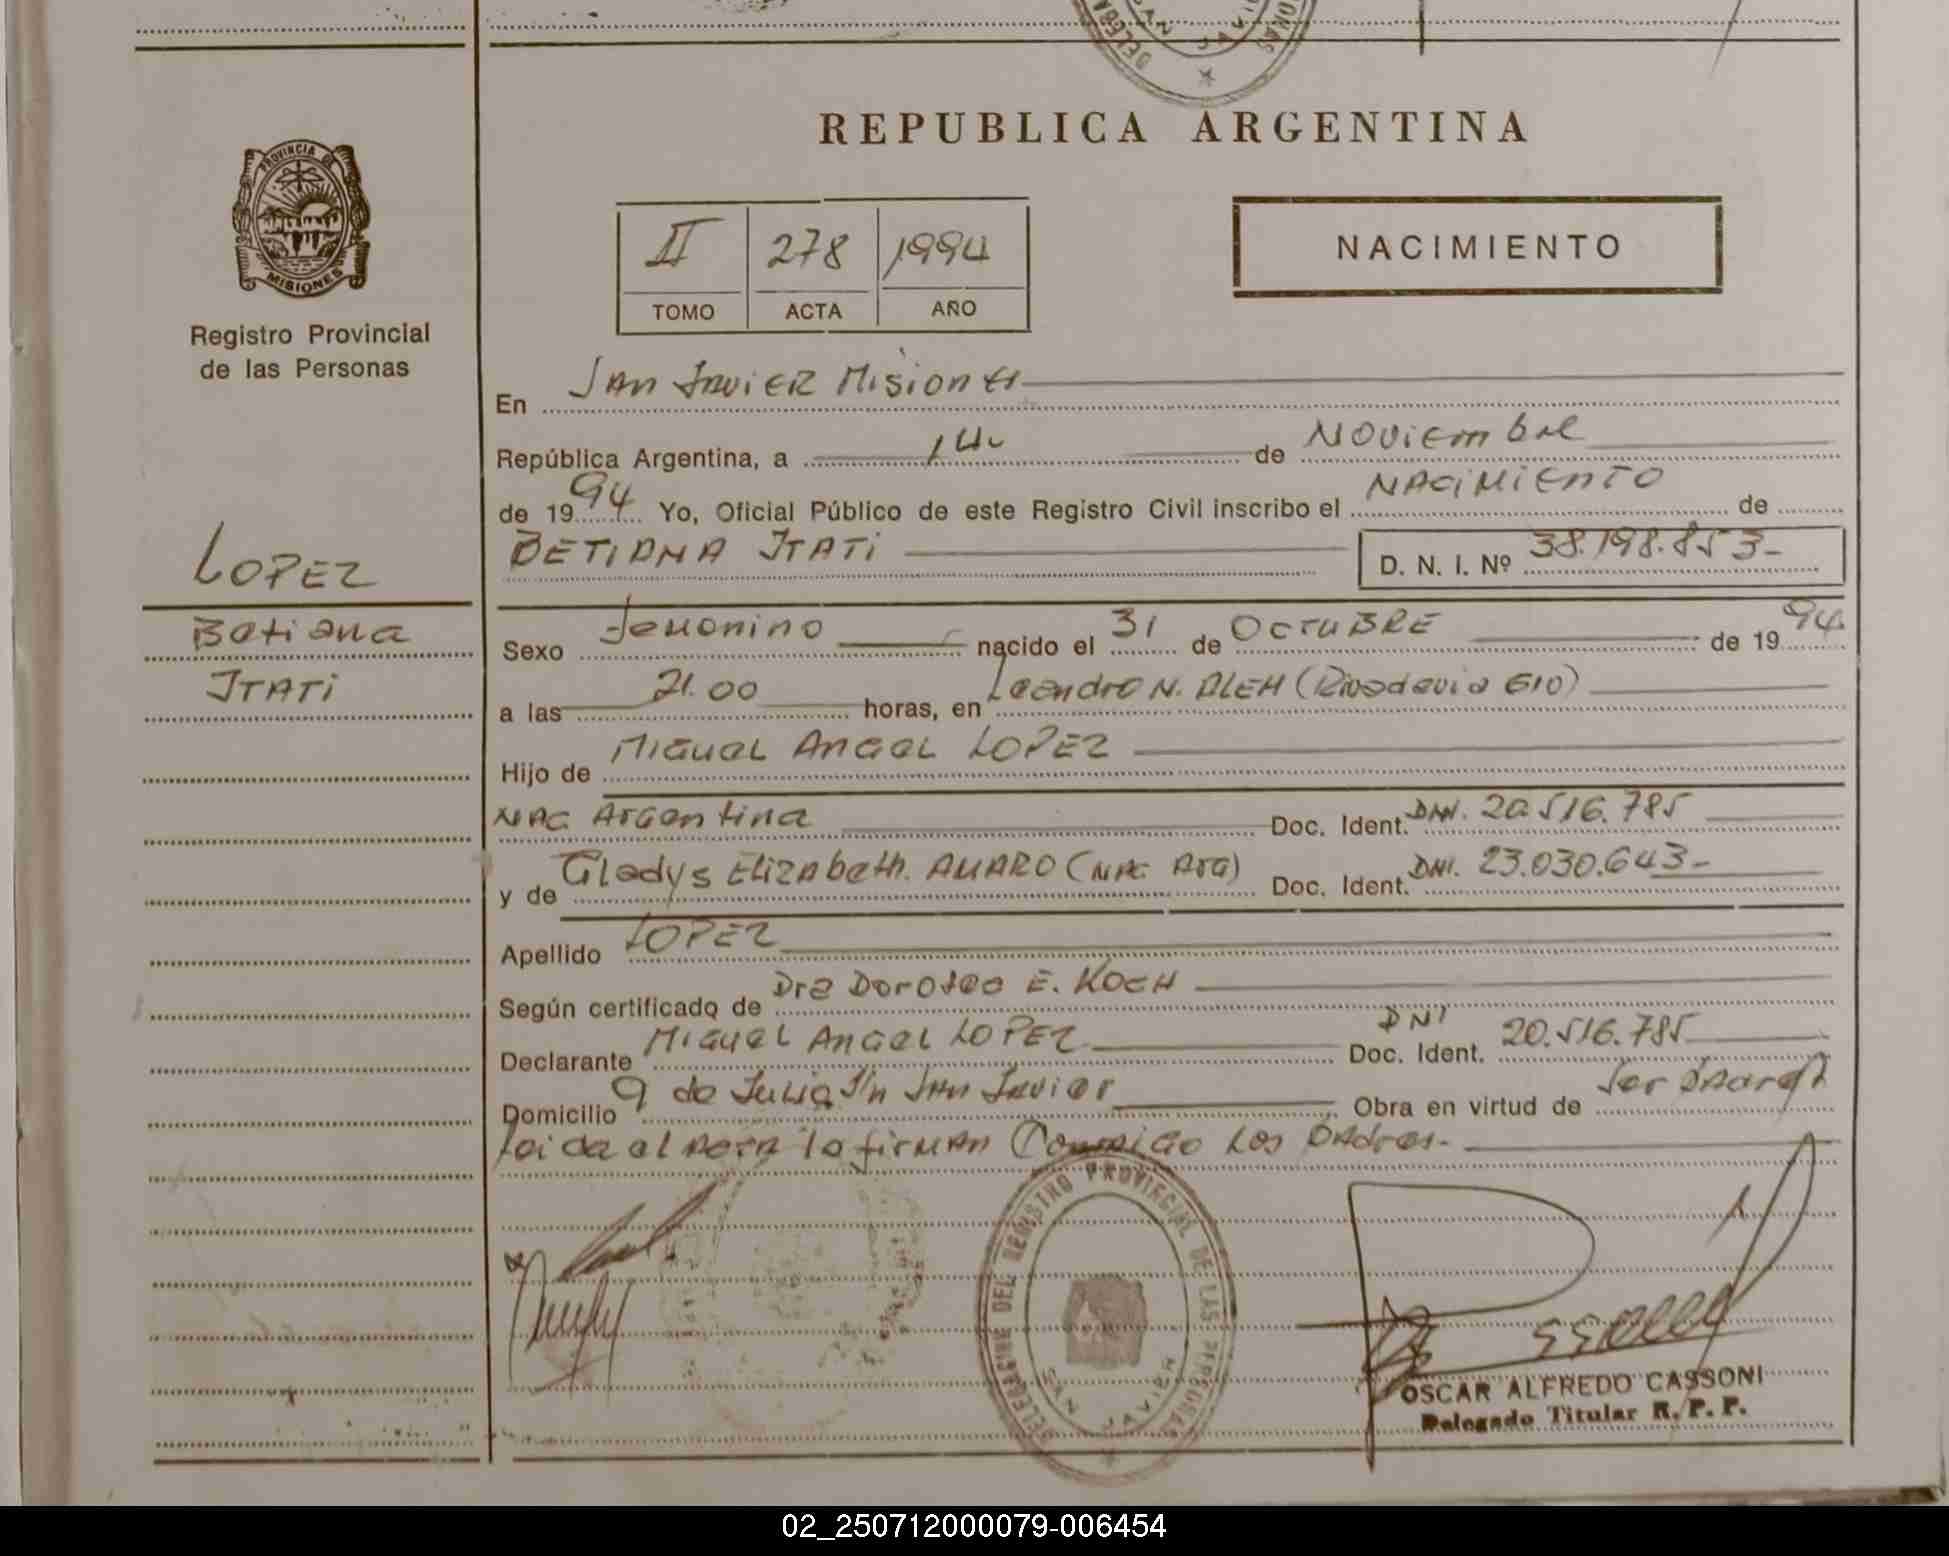 DELEGA
SAN JAVI
ONAS
REPUBLICA ARGENTINA
PROVINCIA DE
MISIONES
Registro Provincial
de las Personas
II 278 1994
TOMO ACTA AÑO
NACIMIENTO
En San Javier Misiones
República Argentina, a 14 de Noviembre
de 1994 Yo, Oficial Público de este Registro Civil inscribo el NACIMIENTO de
BETIANA ITATI D. N. I. Nº 38.198.853-
LOPEZ
Betiana
ITATI
Sexo femenino nacido el 31 de OCTUBRE de 1994
a las 21.00 horas, en Leandro N. ALEM (Rivadavia 610)
Hijo de Miguel Angel LOPEZ
NAC Argentina Doc. Ident. DNI. 20.516.785
y de Gladys Elizabeth. AMARO (NAC Arg) Doc. Ident. DNI. 23.030.643-
Apellido LOPEZ
Según certificado de Dra Dorotea E. KOCH
Declarante Miguel Angel LOPEZ DNI Doc. Ident. 20.516.785
Domicilio 9 de Julio S/n San Javier Obra en virtud de Ser Padres
Leida el Acta la firman Conmigo Los Padres-
DELEGACION DEL REGISTRO PROVINCIAL DE LAS PERSONAS
SAN JAVIER
OSCAR ALFREDO CASSONI
Delegado Titular R. P. P.
02_250712000079-006454